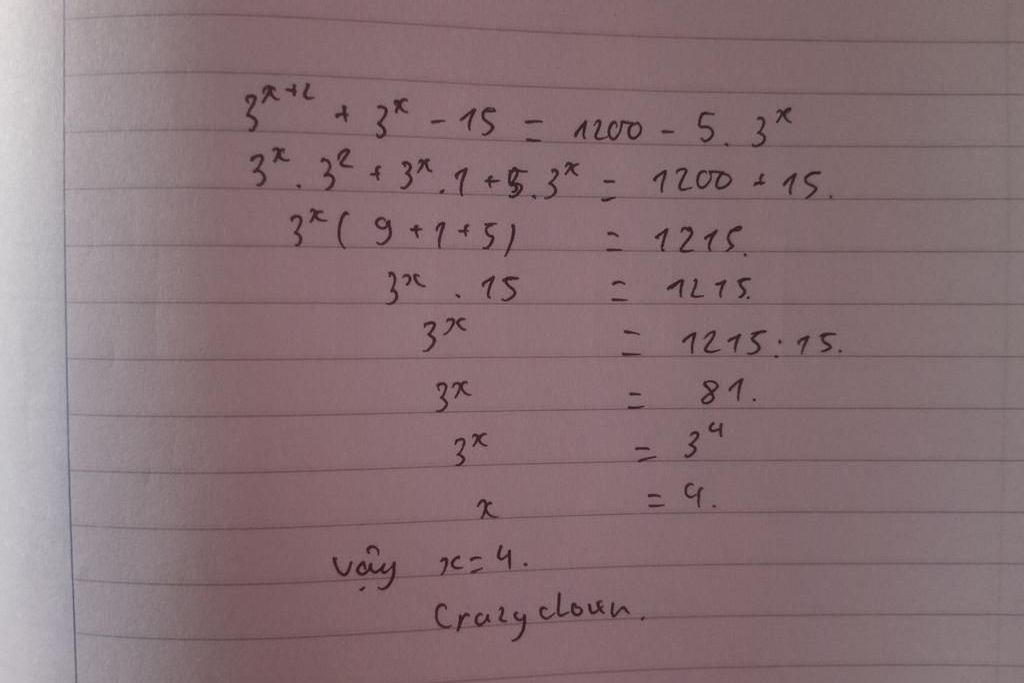 3^{x+2} + 3^x - 15 = 1200 - 5. 3^x
3^x. 3^2 + 3^x. 1 + 5. 3^x = 1200 + 15.
3^x ( 9 + 1 + 5) = 1215.
3^x . 15 = 1215.
3^x = 1215 : 15.
3^x = 81.
3^x = 3^4
x = 4.
Vậy x = 4.
Crazyclown.